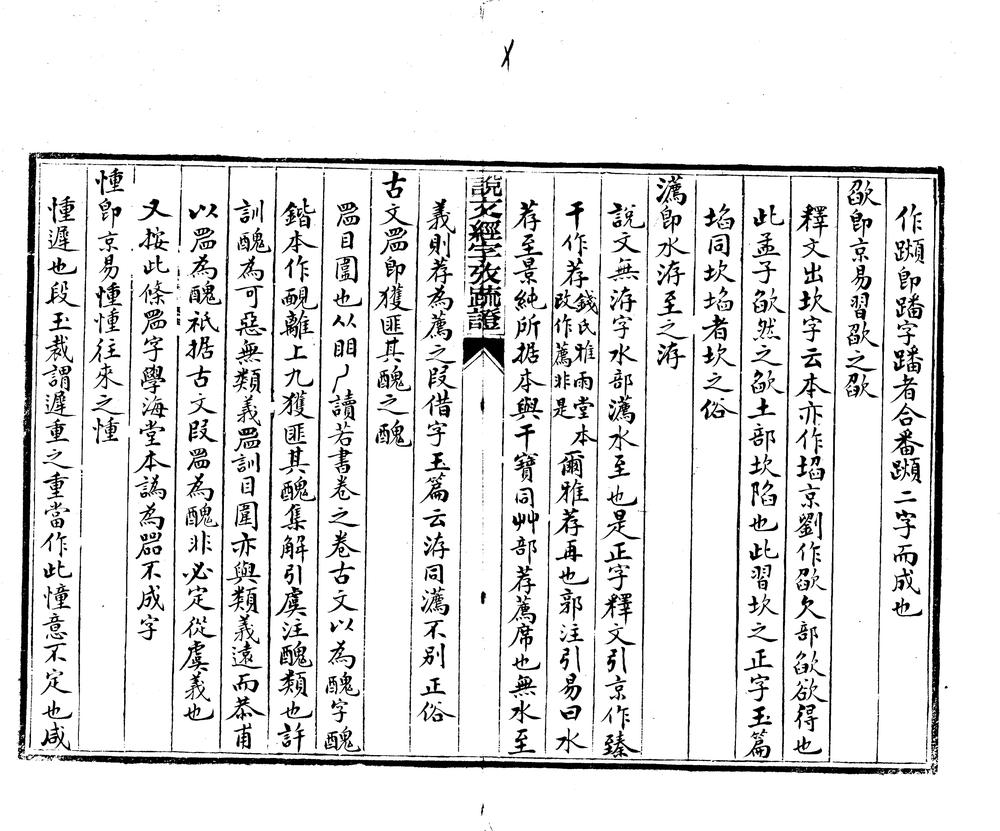 作蹞即蹯字蹯者合番蹞二字而成也
欿即京易習欿之欿
釋文出坎字云本亦作埳京劉作欿欠部欿欲得也
此孟子欿然之欿土部坎陷也此習坎之正字玉篇
埳同坎埳者坎之俗
瀳即水洊至之洊
說文無洊字水部瀳水至也是正字釋文引京作臻
干作荐錢氏雅雨堂本改作薦非是爾雅荐再也郭注引易曰水
荐至景純所据本與干寶同艸部荐薦席也無水至
說文經字攷疏證
義則荐為薦之叚借字玉篇云洊同瀳不别正俗
古文䀠即獲匪其醜之醜
䀠目圍也从䀠丿讀若書卷之卷古文以為醜字醜
鍇本作靦離上九獲匪其醜集解引虞注醜類也許
訓醜為可惡無類義䀠訓目圍亦與類義遠而恭甫
以䀠為醜祇据古文叚䀠為醜非必定從虞義也
又按此條䀠字學海堂本譌為㗊不成字
憧即京易憧憧往來之憧
憧遲也段玉裁謂遲重之重當作此憧意不定也咸